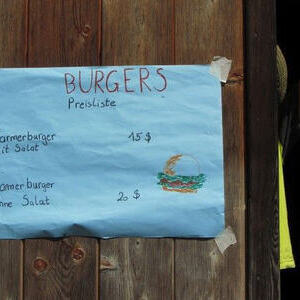 BURGERS
Preisliste
armerburger 15 $
it Salat
armerburger
nne Salat 20 $